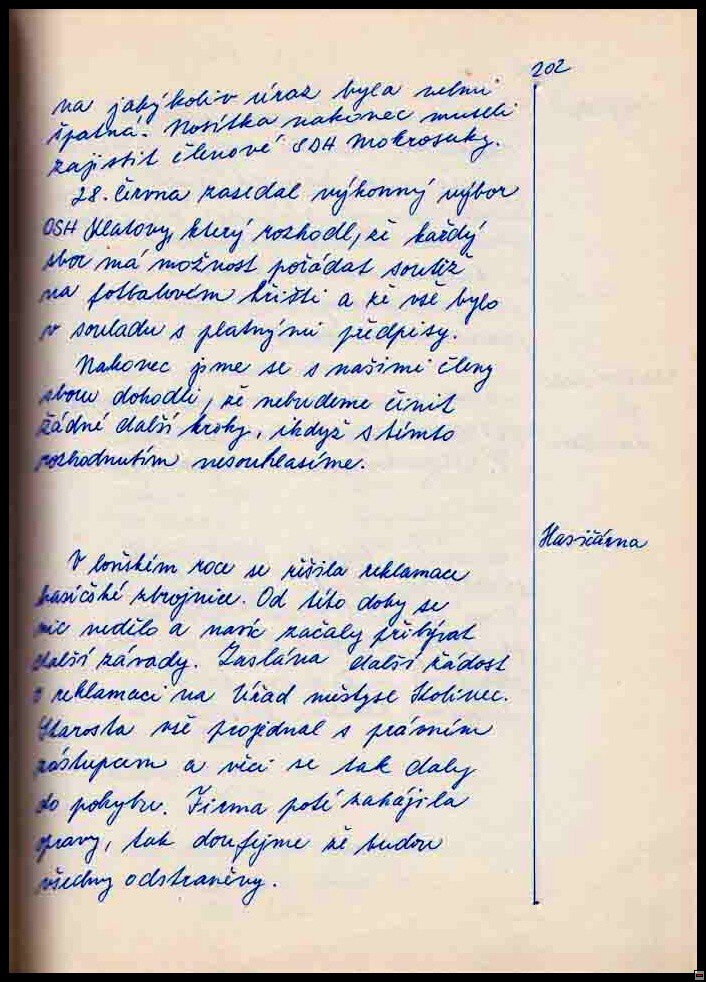 202
na jakýkoliv úraz byla velmi
špatná. Nosítka nakonec museli
zajistit členové SDH Mokrosuky.
28. června zasedal výkonný výbor
OSH Klatovy, který rozhodl, že každý
sbor má možnost pořádat soutěž
na fotbalovém hřišti a že vše bylo
v souladu s platnými předpisy.
Nakonec jsme se s našimi členy
sboru dohodli, že nebudeme činit
žádné další kroky, ikdyž s tímto
rozhodnutím nesouhlasíme.
Hasičárna
V loňském roce se řešila reklamace
hasičské zbrojnice. Od této doby se
nic nedělo a navíc začaly přibývat
další závady. Zaslána další žádost
o reklamaci na Úřad městyse Kolinec.
Starosta vše projednal s právním
zástupcem a věci se tak daly
do pohybu. Firma poté zahájila
opravy, tak doufejme že budou
všechny odstraněny.